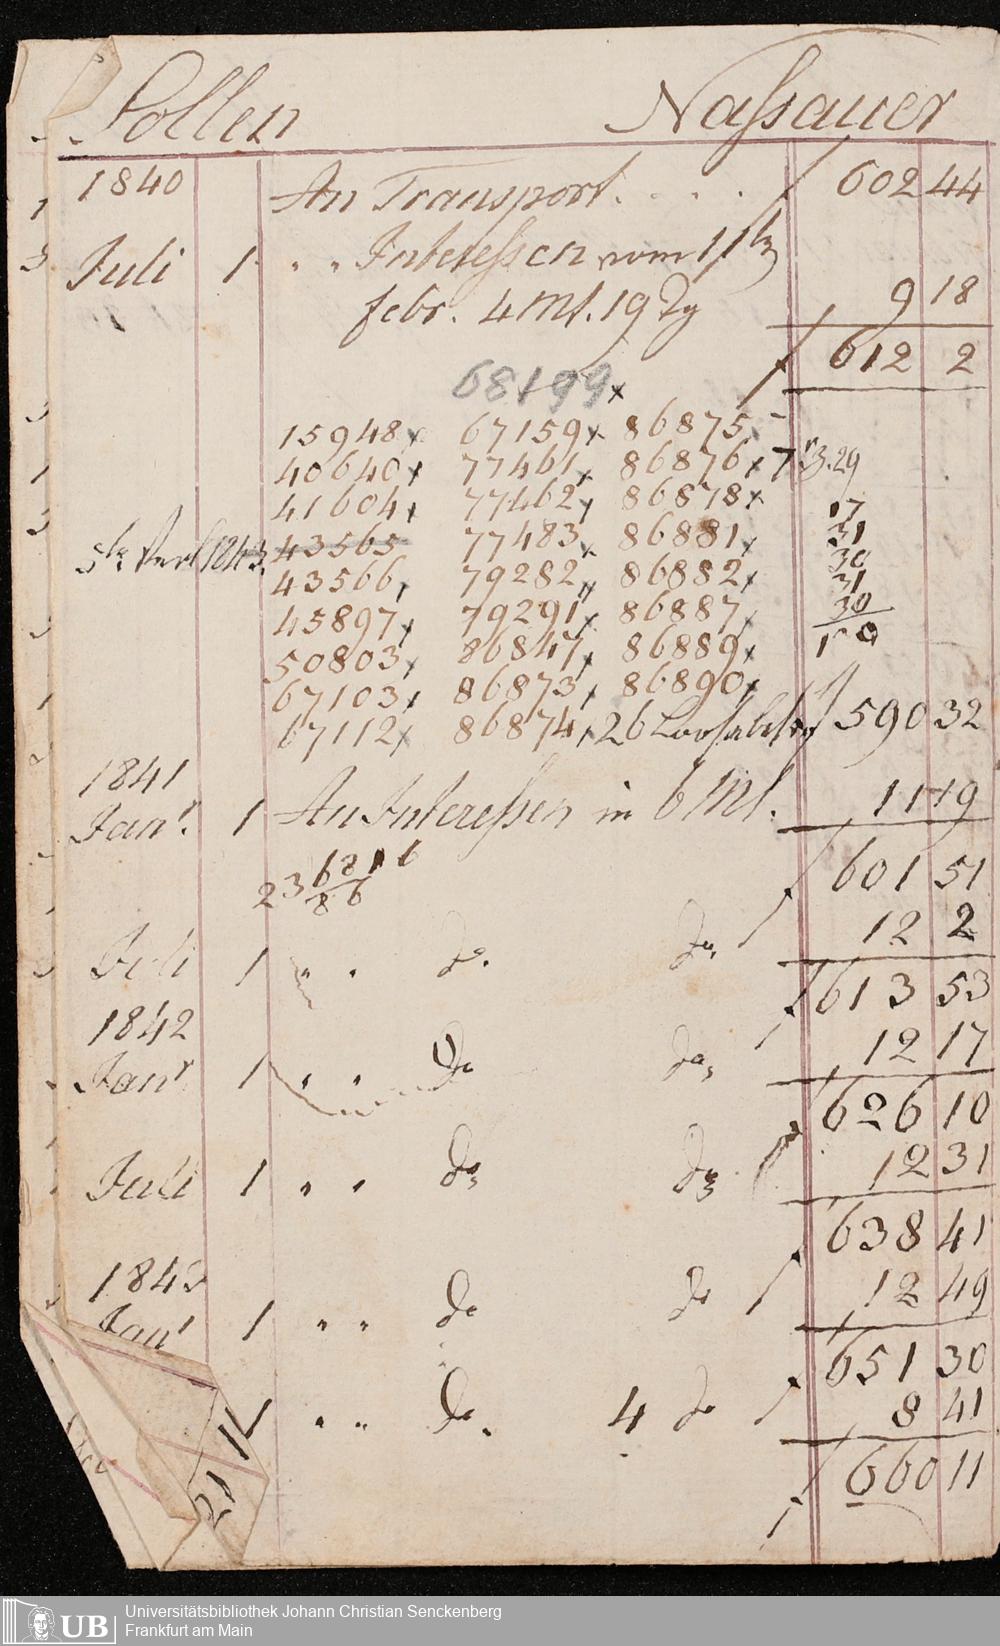 Sollen Nassauer
1840 An Transport. . . . / 602 44
Juli 1 " " Interessen vom 11
febr. 4 Mt. 19 Tg 9 18
/ 612 2
68199 x
15948 x 67159 x 86875
40640 x 77461 x 86876 x
41604 x 77462 x 86878 x 17
1843. 43565 77483 x 86881 x 31
43566 x 79282 x 86882 x 30
45897 x 79291 x 86887 x 31
50803 x 86847 x 86889 x 30
67103 x 86873 x 86890 x
67112 x 86874 x 26 590 32
1841
Janr. 1 An Interessen in 6 Mt. 11 19
/ 601 51
Juli 1 " " do. do. 12 2
/ 613 53
1842
Janr 1 " " do do. 12 17
/ 626 10
Juli 1 " " do do 12 31
/ 638 41
1843
Janr 1 " " do do 12 49
/ 651 30
1 " " do. 4 do 8 41
/ 660 11
UB Universitätsbibliothek Johann Christian Senckenberg
Frankfurt am Main